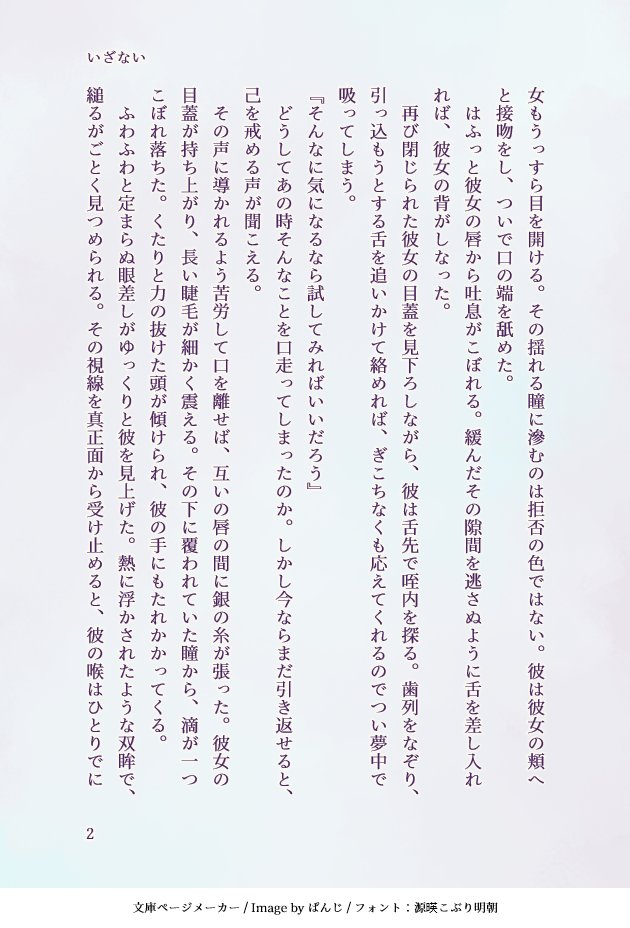 いざない
女もうっすら目を開ける。その揺れる瞳に滲むのは拒否の色ではない。彼は彼女の頬へ
と接吻をし、ついで口の端を舐めた。
はふっと彼女の唇から吐息がこぼれる。緩んだその隙間を逃さぬように舌を差し入れ
れば、彼女の背がしなった。
再び閉じられた彼女の目蓋を見下ろしながら、彼は舌先で咥内を探る。歯列をなぞり、
引っ込もうとする舌を追いかけて絡めれば、ぎこちなくも応えてくれるのでつい夢中で
吸ってしまう。
『そんなに気になるなら試してみればいいだろう』
どうしてあの時そんなことを口走ってしまったのか。しかし今ならまだ引き返せると、
己を戒める声が聞こえる。
その声に導かれるよう苦労して口を離せば、互いの唇の間に銀の糸が張った。彼女の
目蓋が持ち上がり、長い睫毛が細かく震える。その下に覆われていた瞳から、滴が一つ
こぼれ落ちた。くたりと力の抜けた頭が傾けられ、彼の手にもたれかかってくる。
ふわふわと定まらぬ眼差しがゆっくりと彼を見上げた。熱に浮かされたような双眸で、
縋るがごとく見つめられる。その視線を真正面から受け止めると、彼の喉はひとりでに
2
文庫ページメーカー / Image by ぱんじ / フォント：源暎こぶり明朝